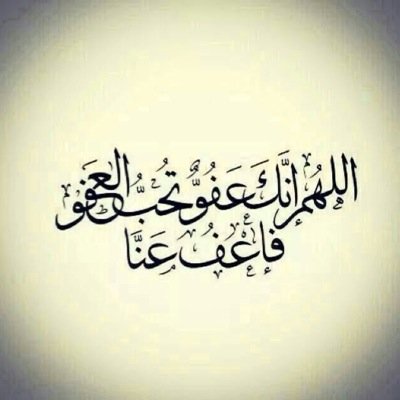 اللهُم اِنَّكَ عَفُوٌّ تُحِبُّ العَفوَ
فَاعْفُ عَنَّا